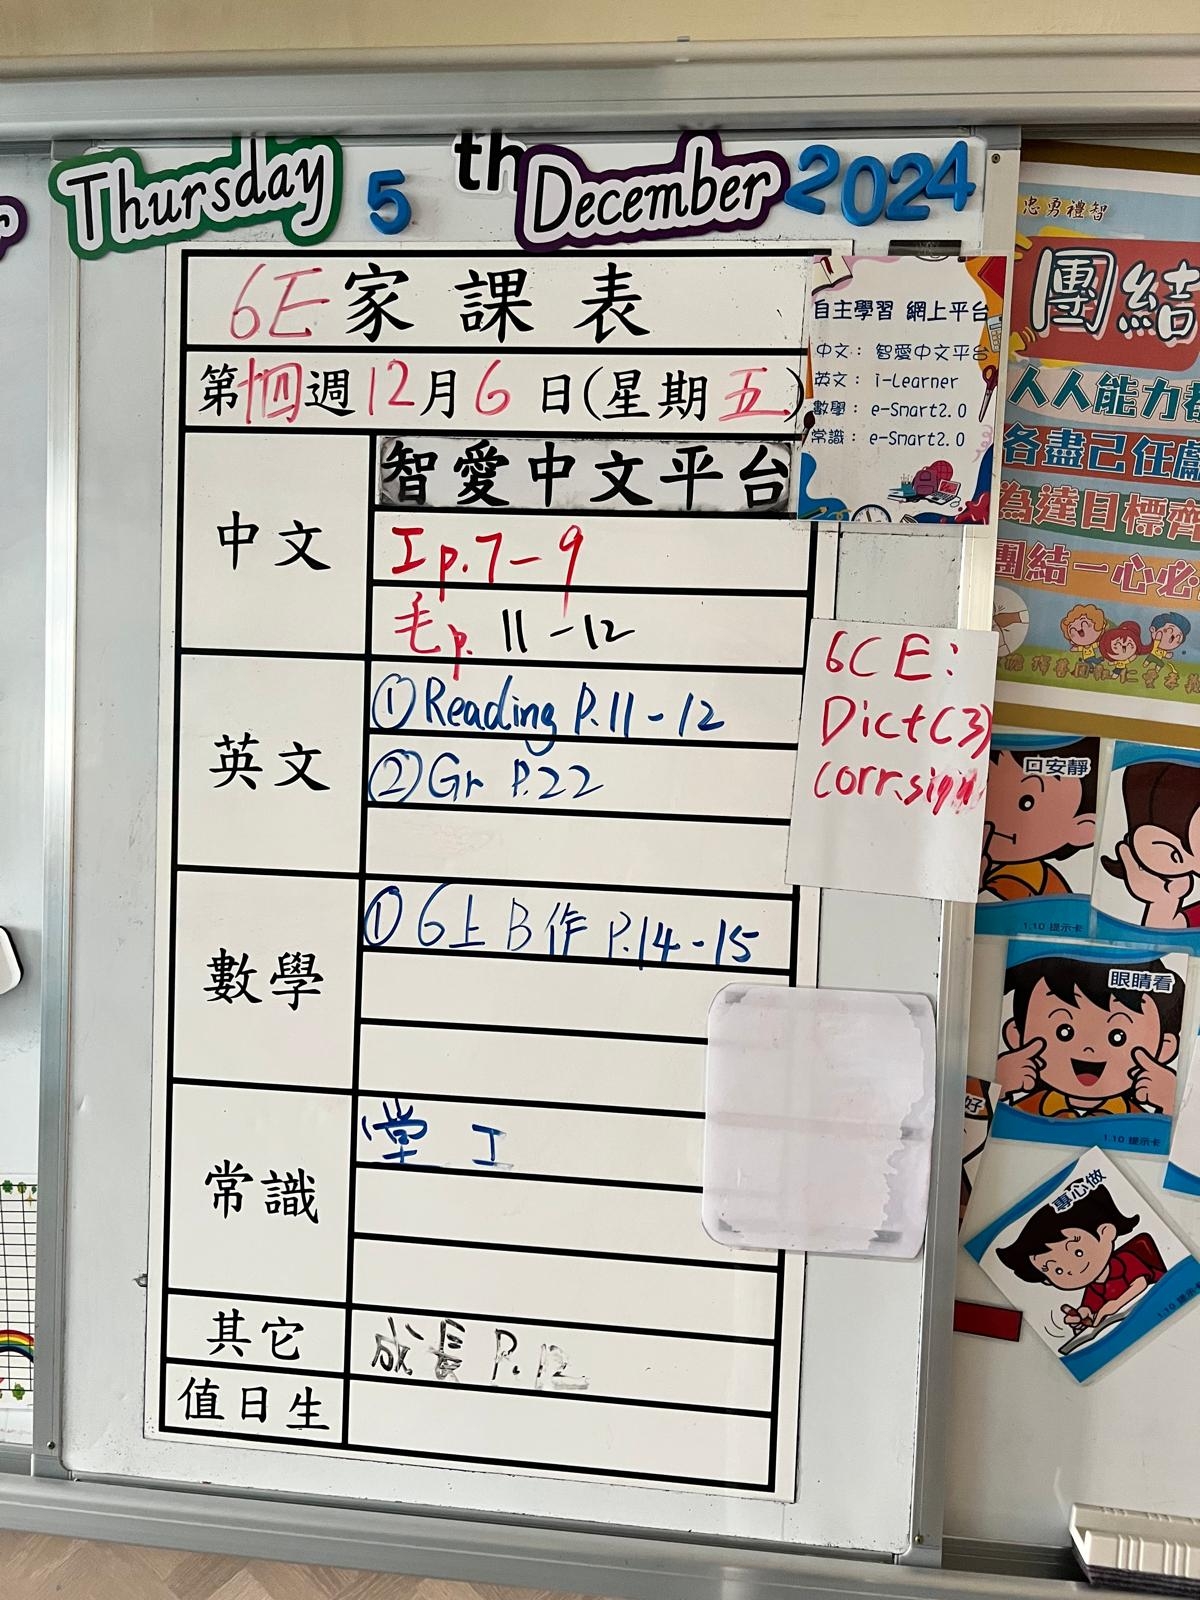 Thursday 5th December 2024
6E 家課表
第十四週 12月6日(星期五)
中文
智愛中文平台
工 p.7-9
毛 p. 11-12
英文
① Reading P.11-12
② Gr P.22
數學
① 6上B作 P.14-15
常識
堂 工
其它
成長 P.12
值日生
自主學習 網上平台
中文： 智愛中文平台
英文： i-Learner
數學： e-Smart2.0
常識： e-Smart2.0
6CE:
Dict(3)
corr.sign
忠勇禮智
團結
人人能力都
各盡己任獻
為達目標齊
團結一心必
口安靜
1.10 提示卡
眼睛看
1.10 提示卡
好
專心做
1.10 提示卡